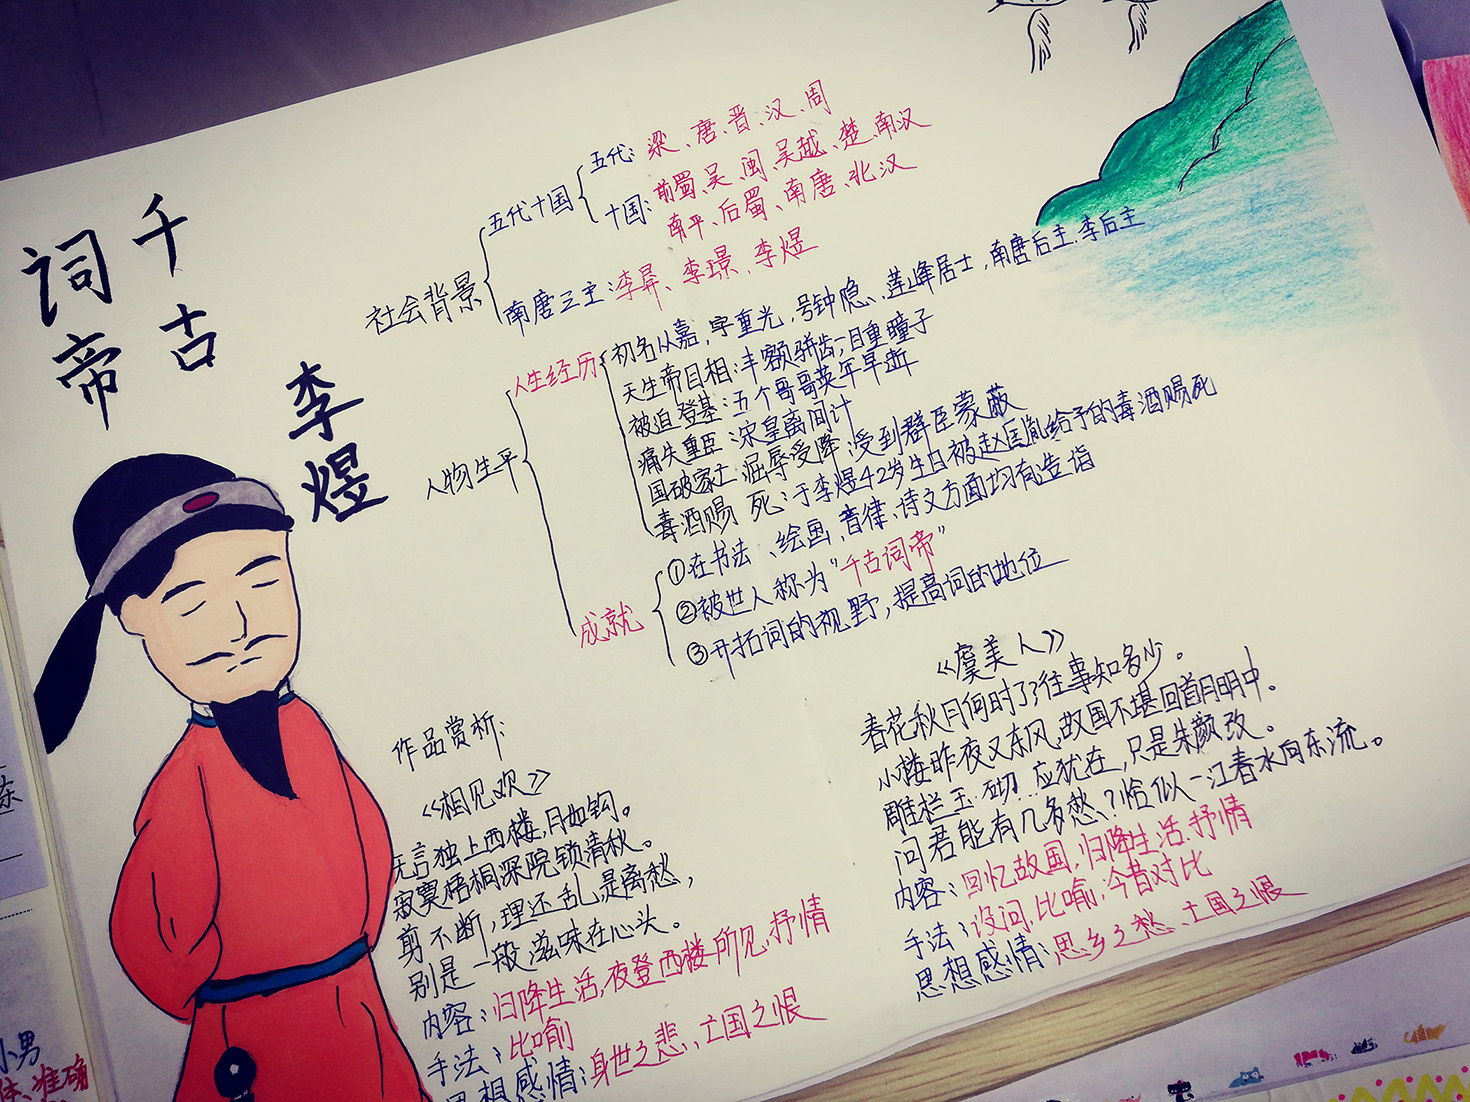 千古
词帝
李煜
社会背景
五代十国
五代：梁、唐、晋、汉、周
十国：前蜀、吴、闽、吴越、楚、南汉
南平、后蜀、南唐、北汉
南唐三主：李昪、李璟、李煜
人物生平
人生经历
初名从嘉，字重光，号钟隐、莲峰居士，南唐后主、李后主
天生帝相：丰额骈齿，一目重瞳子
被迫登基：五个哥哥英年早逝
痛失重臣：宋皇离间计
国破家亡：屈辱受降，受到群臣蒙蔽
毒酒赐死：于李煜42岁生日被赵匡胤给予的毒酒赐死
成就
①在书法、绘画、音律、诗文方面均有造诣
②被世人称为“千古词帝”
③开拓词的视野，提高词的地位
作品赏析：
《相见欢》
无言独上西楼，月如钩。
寂寞梧桐深院锁清秋。
剪不断，理还乱，是离愁，
别是一般滋味在心头。
内容：归降生活，夜登西楼所见，抒情
手法：比喻
思想感情：身世之悲、亡国之恨
《虞美人》
春花秋月何时了？往事知多少。
小楼昨夜又东风，故国不堪回首月明中。
雕栏玉砌应犹在，只是朱颜改。
问君能有几多愁？恰似一江春水向东流。
内容：回忆故国，归降生活，抒情
手法：设问，比喻，今昔对比
思想感情：思乡之愁、亡国之恨
东
小男
体、准确